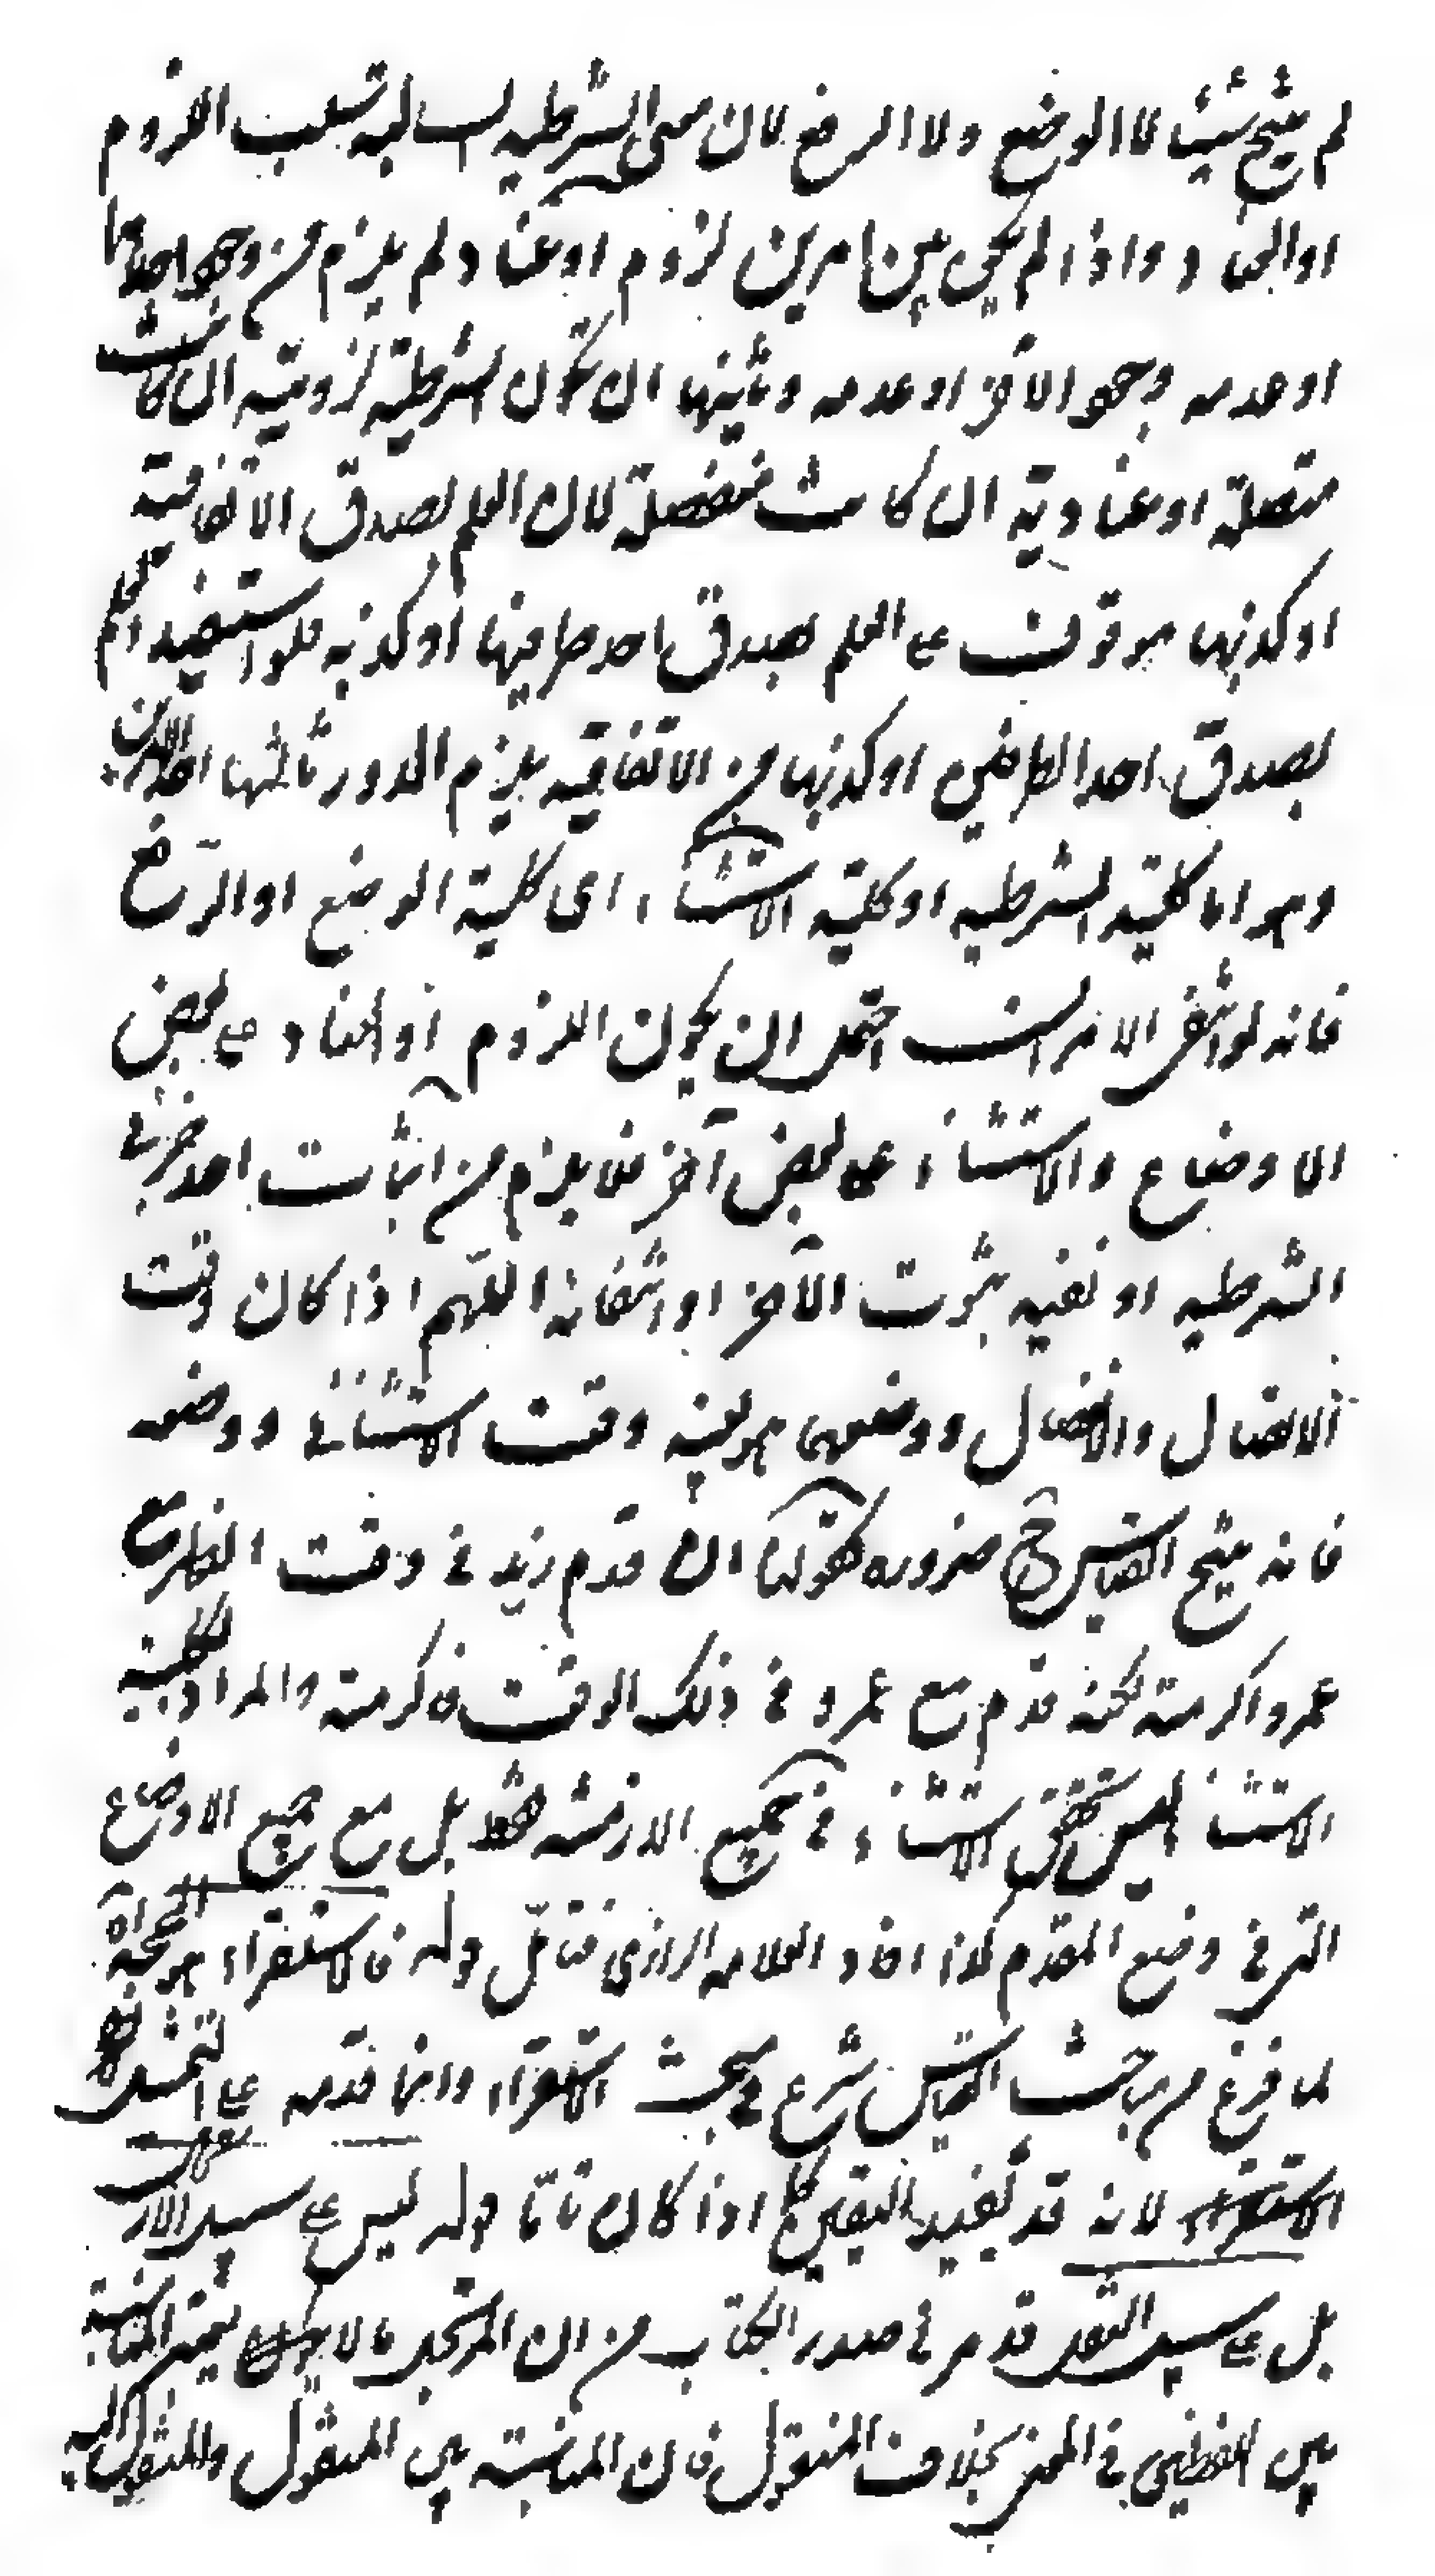 لم ينتج شيئا لا الوضع ولا الرفع لان معنى الشرطيه السالبه سلب اللزوم
او العناد واذا لم يكن بين امرين لزوم او عناد لم يلزم من وجود احدهما
او عدمه وجود الآخر او عدمه وثانيها ان تكون الشرطية لزومية ان كانت
متصلة او عنادية ان كانت منفصلة لان العلم بصدق الاتفاقية
او كذبها موقوف على العلم بصدق احد طرفيها او كذبه فلو استفيد العلم
بصدق احد الطرفين او كذبها من الاتفاقيه يلزم الدور ثالثها احد الامرين
وهو اما كلية الشرطيه او كلية الاستثناء اى كلية الوضع او الرفع
فانه لو انتفى الامران احتمل ان يكون اللزوم او العناد على بعض
الاوضاع والاستثناء على بعض آخر فلا يلزم من اثبات احد جزئى
الشرطيه او نفيه ثبوت الآخر او انتفائه اللهم اذا كان وقت
الاتصال والانفصال ووضعهما هو بعينه وقت الاستثناء ووضعه
فانه ينتج القياس ح ضرورة كقولنا ان قدم زيد فى وقت الظهر مع
عمرو اكرمته لكنه قدم مع عمرو فى ذلك الوقت فاكرمته والمراد بكلية
الاستثناء ليس تحقق الاستثناء فى جميع الازمنة فقط بل مع جميع الاوضاع
التى فى وضع المقدم كذا افاد العلامه الرازى فتأمل قوله فالاستقراء هو الحجة اه
لما فرغ من مباحث القياس شرع فى بحث الاستقراء وانما قدمه على التمثيل
الاستقراء لانه قد يفيد اليقين اذا كان تاما قوله ليس على سبيل
بل على سبيل النقل قد مر فى صدر الكتاب من ان المرتجل ما لا يكون فيه المناسبة
بين اللفظين فى المعنى بخلاف المنقول فان المناسبة بين المنقول والمنقول اليه